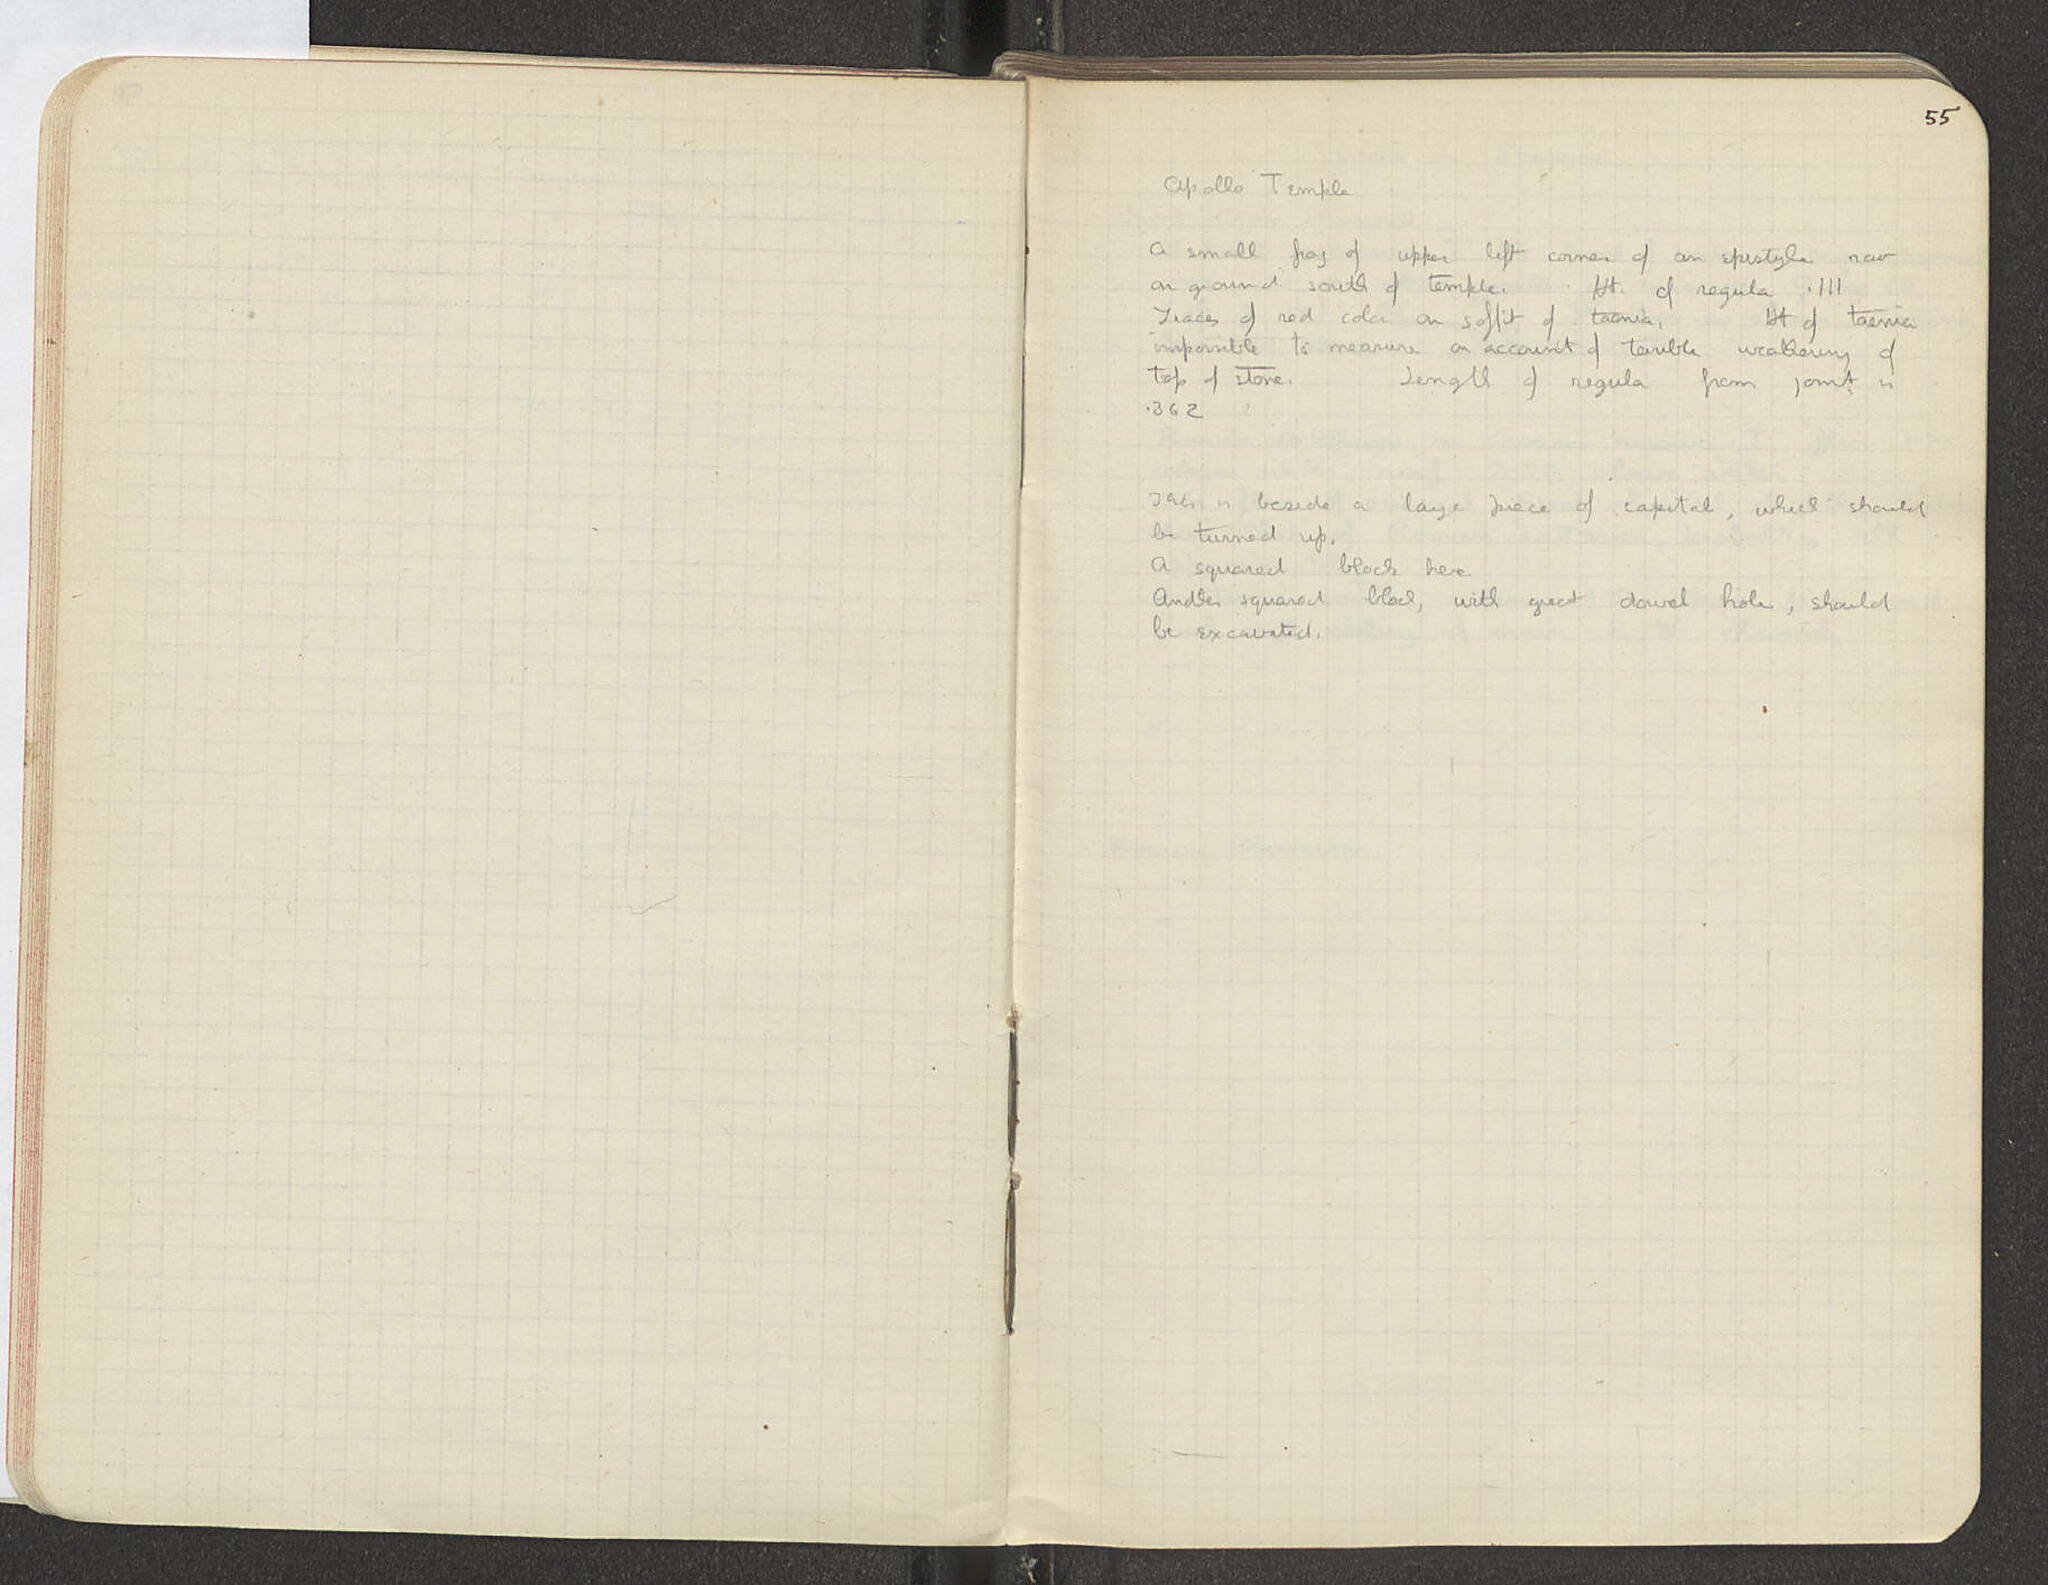 55
Apollo Temple
A small frag of upper left corner of an epistyle now
on ground south of temple. Ht. of regula .111
Traces of red color on soffit of taenia. Ht of taenia
impossible to measure on account of terrible weathering of
top of stone. Length of regula from joint is
.362
This is beside a large piece of capital, which should
be turned up.
A squared block here
Another squared block, with great dowel hole, should
be excavated.